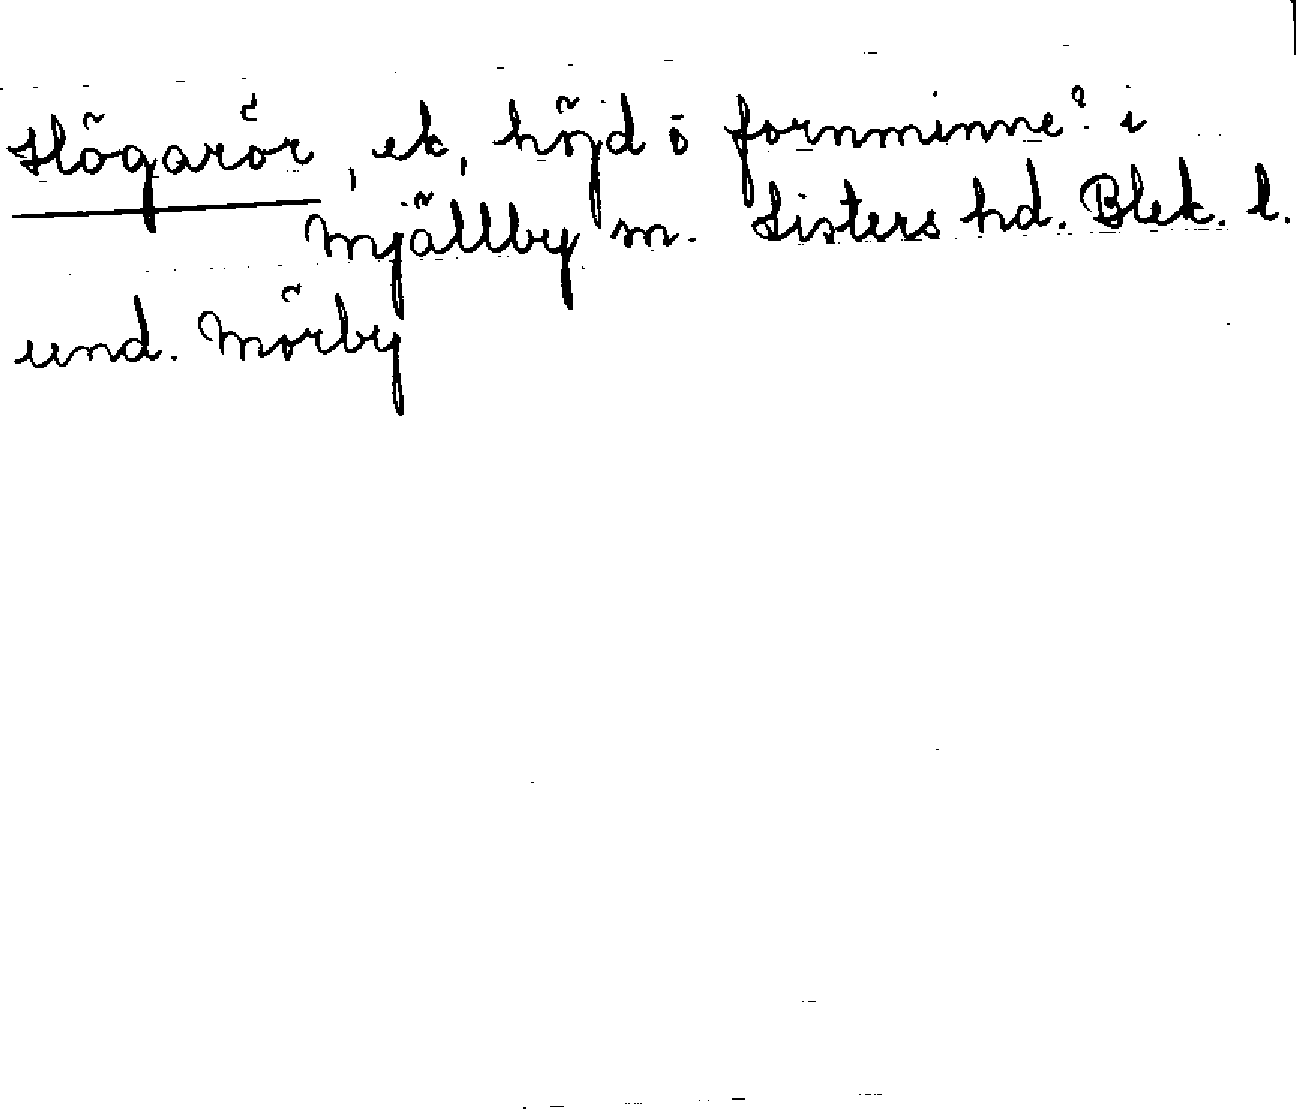 Högarör, ek, höjd ö fornminne? i
Mjällby sn. Listers hd. Blek. l.
und. Mörby